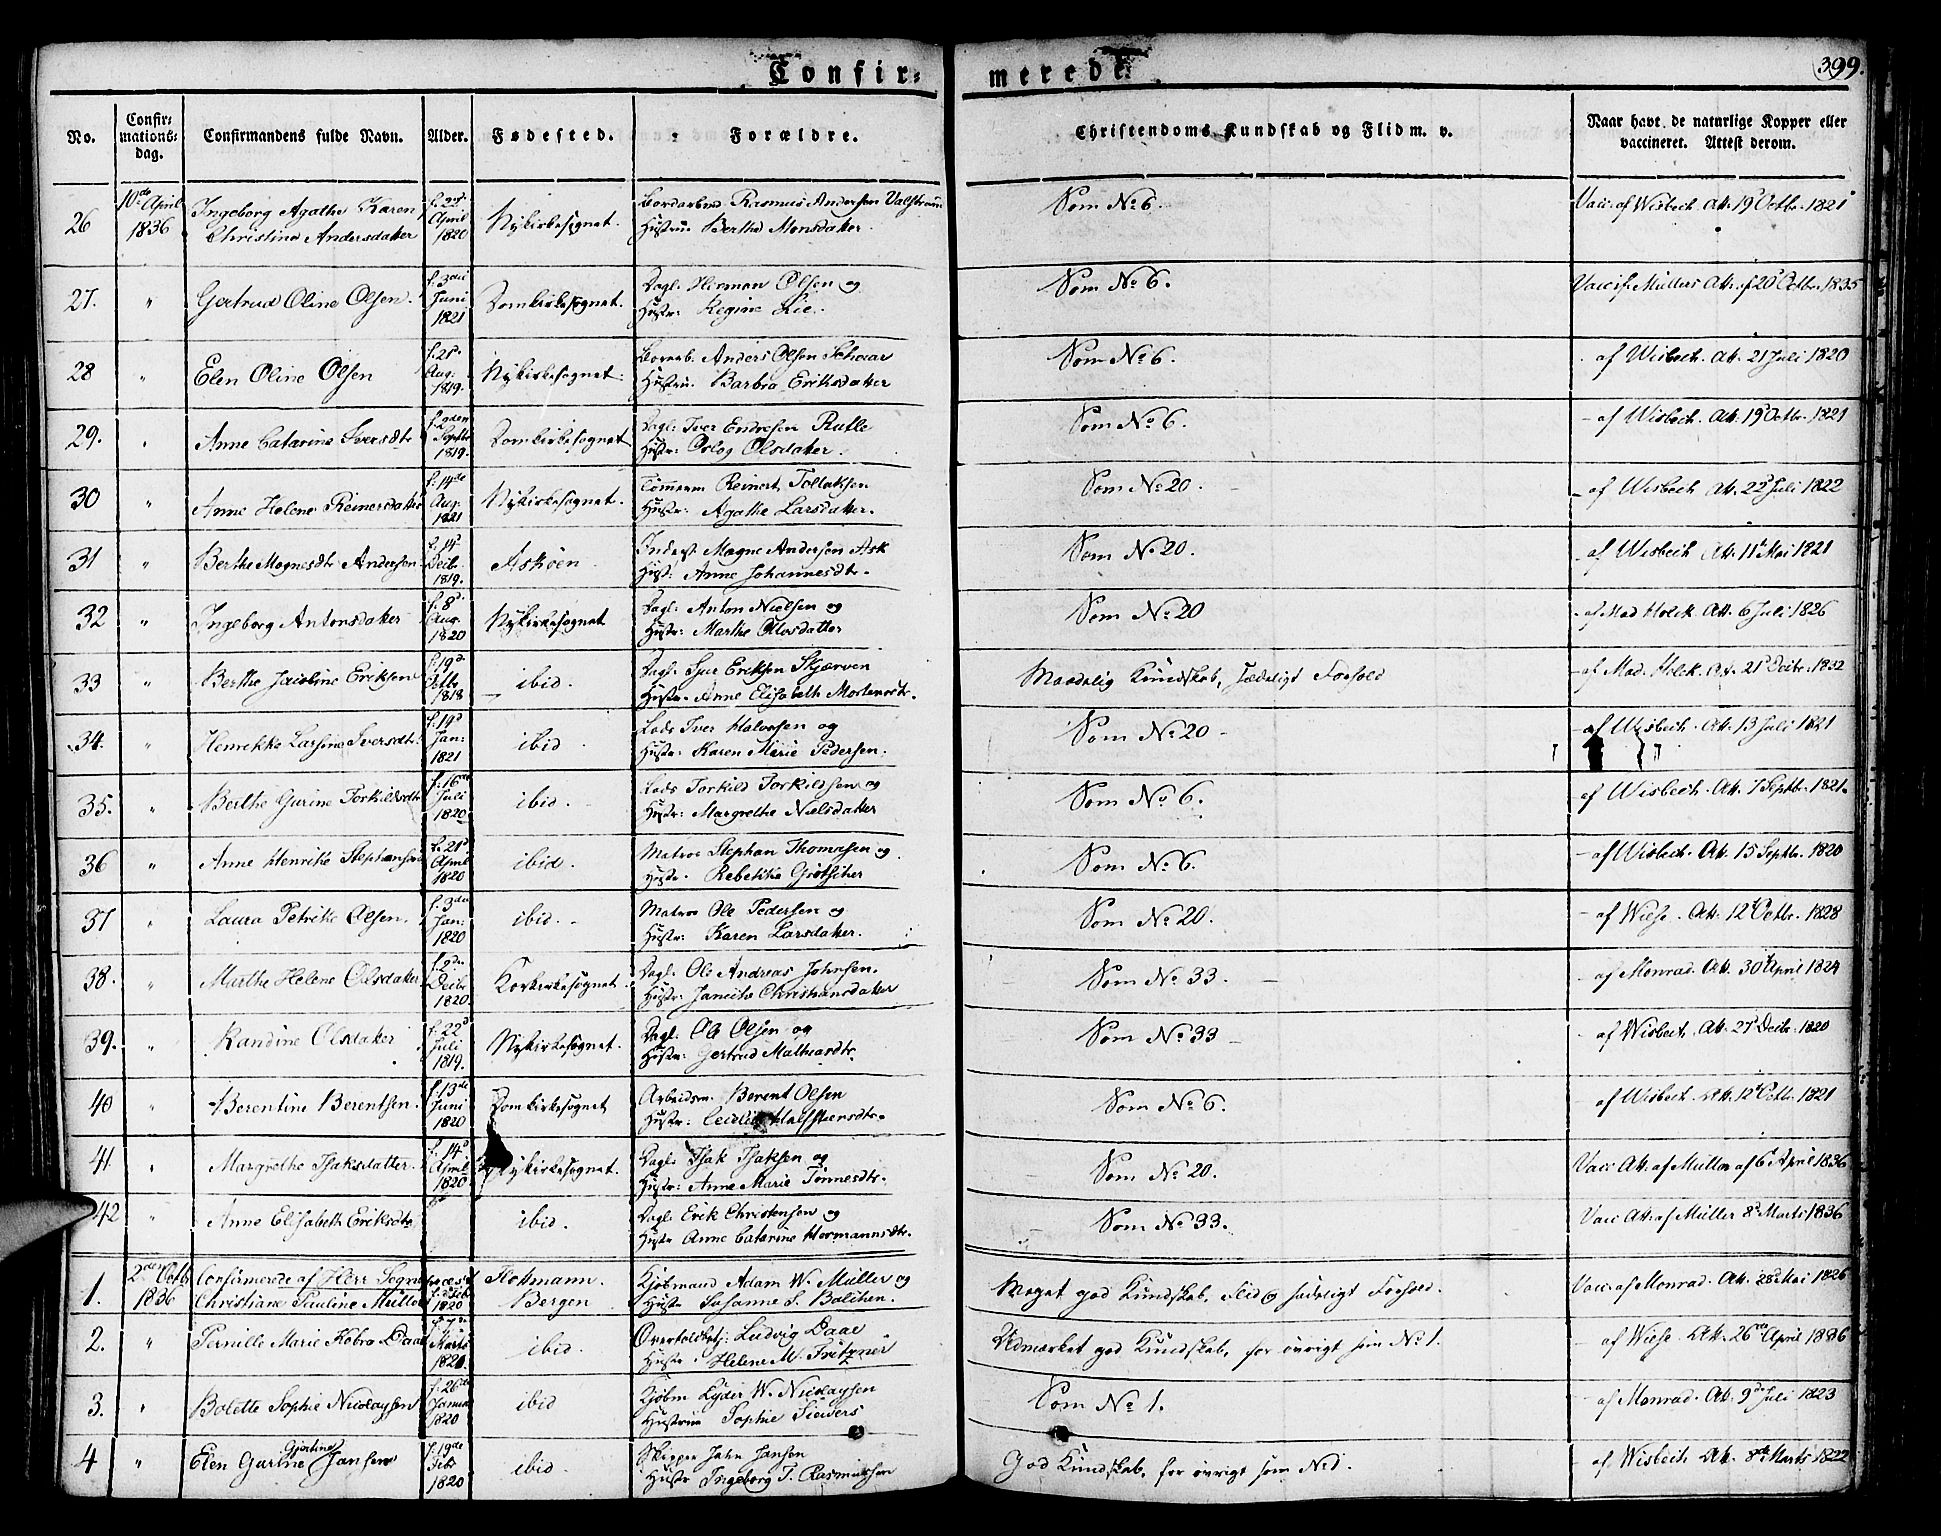 Confir= merede. 399.
No. Confir-mations-dag. Confirmandens fulde Navn. Alder. Fødested. Forældre. Christendoms Kundskab og Flid m. v. Naar havt de naturlige Kopper eller vaccineret. Attest derom.
26 10de April 1836 Ingeborg Agathe Karen Christine Andersdatter f. 2d April 1820 Nykirkesognet Rasmus Andersen Valstrøm Hustrue Berthe Monsdatter. Som No 6 Vacc. af Wisbech. Att. 19d Octbr. 1821
27. " Gertrud Oline Olsen. f. 3die Juni 1821 Domkirkesognet. Dagl. Herman Olsen og Hustr: Regine Lie. Som No 6. Vacc. Müllers Att. af 20d Octbr. 1835
28 " Elen Oline Olsen f. 25d Aug. 1819. Nykirkesognet Anders Olsen Schaar Hustru: Barbra Eriksdatter Som No 6. - af Wisbech. Att. 21 Juli 1820
29. " Anne Catarine Iversdtr f. 9den Septbr 1819. Domkirkesognet Dagl: Iver Endresen Rutle Hustr: Oslog Olsdatter. Som No 6. - af Wisbech. Att. 19d Octbr. 1821
30 " Anne Helene Reinersdatter f. 14de Aug. 1821 Nykirkesognet. Tømmerm Reinert Tollaksen Hustr: Agathe Larsdatter. Som No 20. - af Wisbech Att. 22d Juli 1822
31 " Berthe Magnesdtr Andersen. f. 14d Decbr. 1819. Askøen Inderst. Magne Andersen Ask Hust: Anne Johannesdtr. Som No 20. - af Wisbech Att. 11d Mai 1821
32 " Ingeborg Antonsdatter f. 8d Aug. 1820 Nykirkesognet Dagl: Anton Nielsen og Hustr: Marthe Olsdatter Som No 20 - af Mad Holck. Att. 6 Juli 1826
33 " Berthe Jacobine Eriksen f. 19d Octbr 1818 ibid. Dagl: Iver Eriksen Skjerven Hustr: Anne Elisabeth Mortensdtr. Maadelig Kundskab, sædeligt Forhold - af Mad. Holck. Att. 21d Decbr. 1832
34. " Henrikke Larsine Iversdtr. f. 19d Jan: 1821 ibid. Lods Iver Halvorsen og Hustr: Karen Marie Pedersen. Som No 20 - - af Wisbech. Att. 13 Juli 1821
35. " Berthe Gurine Torkildsdtr f. 16de Juli 1820 ibid. Lods Torkild Torkildsen og Hustr: Margrethe Nielsdatter Som No 6. af Wisbech. Att. 7 Septbr. 1821.
36 " Anne Henrikke Stephansen f. 21d April 1820 ibid. Matros Stephan Thomasen og Hustr. Rebekke Som No 6. - af Wisbech. Att. 15 Septbr. 1820
37 " Laura Petrikke Olsen. f. 3die Jan: 1820 ibid. Matros Ole Pedersen og Hustr: Karen Larsdatter. Som No 20. - af Wiese. Att. 12d Octbr. 1828
38. " Marthe Helene Olsdatter f. 9de Decbr 1820 Korkirkesognet Dagl: Ole Andreas Johnsen. Hustr: Christiansdatter Som No 33. - - af Monrad. Att. 30d April 1824
39. " Randine Olsdatter f. 22d Juli 1819. Nykirkesognet. Dagl. Ole Olsen og Hustr: Gertrud Mathiasdtr. Som No 33 - - af Wisbech Att. 27d Decbr. 1820
40 " Berentine Berentsen. f. 13de Juni 1820 Domkirkesognet Arbeidsm. Berent Olsen Hustr: Cecilie Halfstensdtr. Som No 6. - af Wisbech. Att. 12d Octbr. 1821
41. " Margrethe Isaksdatter. f. 14d April 1820 Nykirkesognet. Dagl. Isak Isaksen og Hustr: Anne Marie Tønnesdtr. Som No 20. Vacc Att. af Müller af 6 April 1836
42 " Anne Elisabeth Eriksdtr ibid. Dagl. Erik Christensen og Hustr Anne Catarine Hermannsdtr. Som No 33. Vacc Att. af Müller 8d Marts 1836
2den Octbr 1836 Confirmerede af Herr Sogne præst Flottmann.
1. Christiane Pauline Müller 1820 Bergen Kjøbmand Adam W. Müller og Hustr Susanne S. Balchen. Meget god Kundskab, Flid og sædeligt Forhold. Vacc. af Monrad. Att. 28d Mai 1826
2. " Pernille Marie Kobro Daae Marts ibid. Overtoldbetj: Ludvig Daae Hustr: Helene M. Fritzner Udmærket god Kundskab, for øvrigt som No 1. - af Wiese Att. 26de April 1836
3. " Bolette Sophie Nicolaysen f. 26de Januar 1820 ibid Kjøbm Lyder W. Nicolaysen Hustrue Sophie Sievers Som No 1. - af Monrad. Att. 9de Juli 1823
4 " Elen Gurine Gjertine Jansen f. 19de Febr 1820 ibid. Skipper John Jansen Hustr Ingeborg T. Rasmussen God Kundskab, for øvrigt som No 1. - af Wisbech Att. 8de Marts 1822